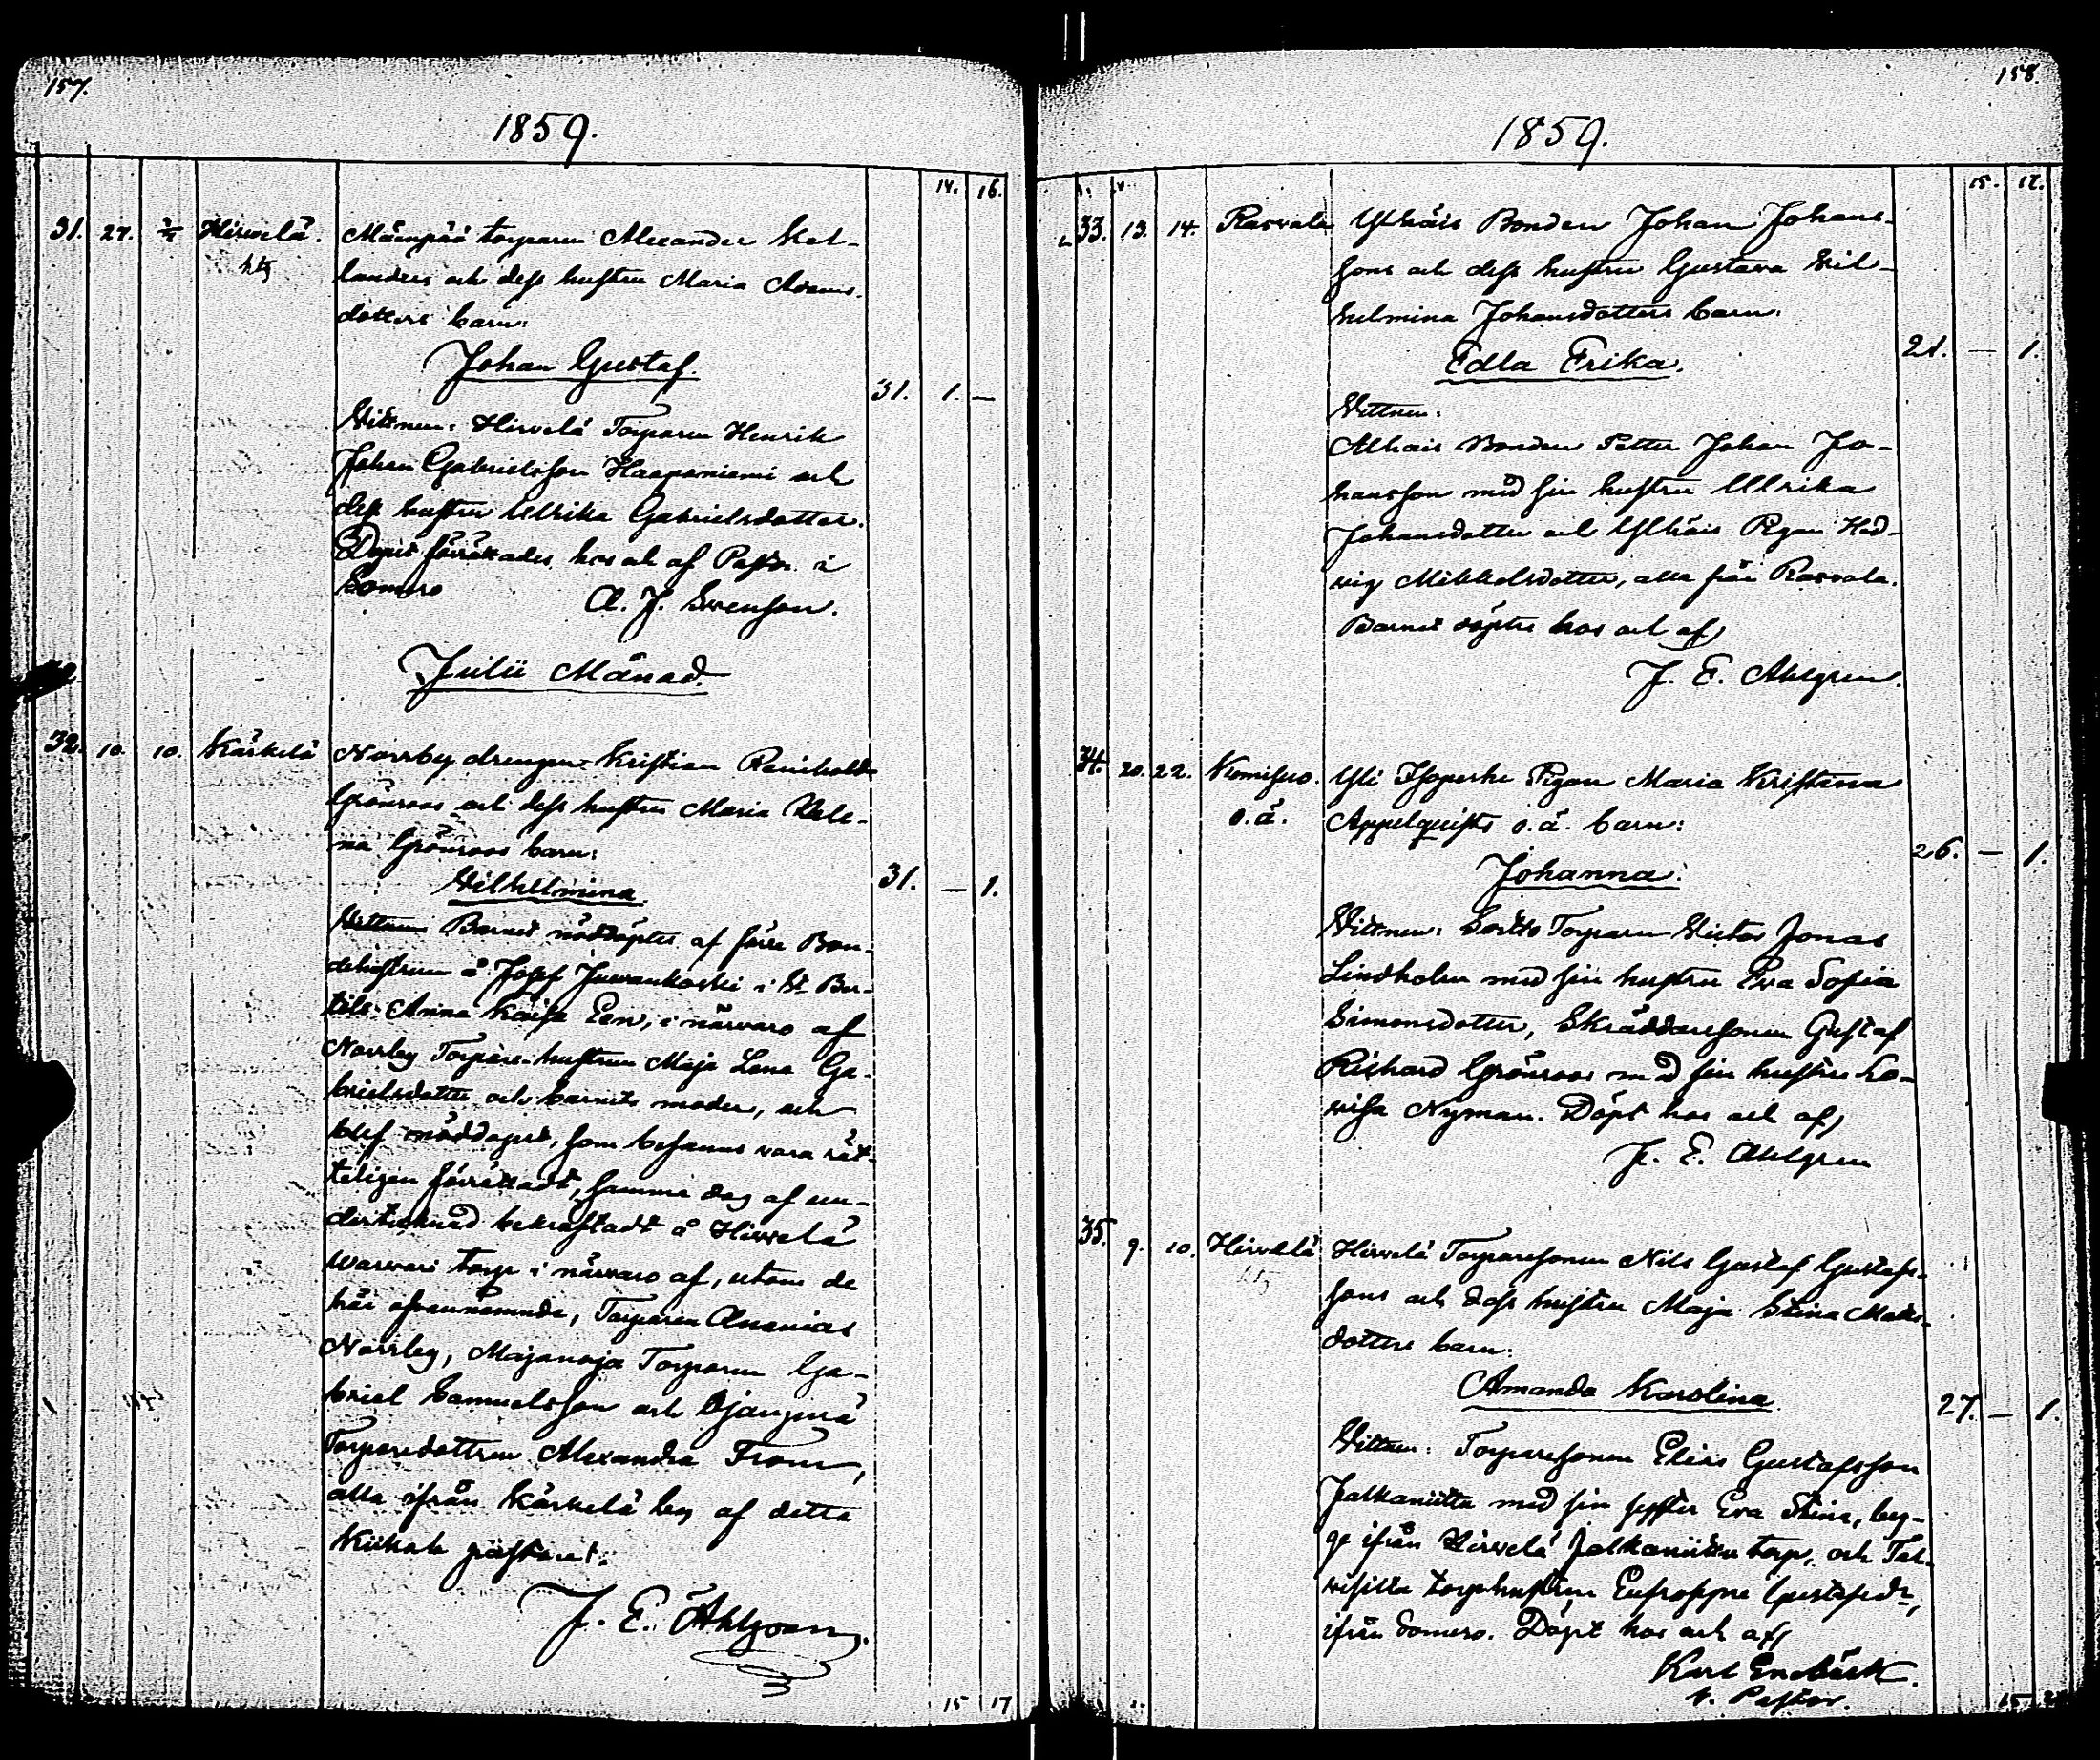 157.
1859.
14. 16.
31. 27. Hirvelä. Mäenpää torparen Alexander Kel-
landers och dess hustru Maria Adams-
dotters barn:
Johan Gustaf.
31. 1. —
Vittnen: Hirvelä Torparen Henrik
Johan Gabrielsson Haapaniemi och
dess hustru Ulrika Gabrielsdotter.
Dopet förrättades hos och af Pastor i
Somero A. J. Svenson.
Julii Månad.
32. 10. 10. Kärkelä Norrby drengen Kristian Reinholds
Grönroos och dess hustru Maria Hele-
na Grönroos barn:
Vilhelmina
31. — 1.
Vittnen Barnet nöddöptes af förre Bon-
dehustrun å Josef Juvankoski i St Ber-
tils Anna Kaisa Een, i närvaro af
Norrby Torpare-hustrun Maja Lena Ga-
brielsdotter och barnets moder, och
blef nöddopet, som befanns vara rät-
teligen förrättadt, samma dag af un-
dertecknad bekräftadt å Hirvelä
Warvari torp i närvaro af, utom de
här ofvannämnde, Torparen Ananias
Norrby, Majanoja Torparen Ga-
briel Samuelsson och Ojanperä
Torparedottren Alexandra From,
alla ifrån Kärkelä by af detta
Kiikala pastorat.
J. E. Ahlgren.
15 17
158.
1859.
15. 17.
33. 13. 14. Rasvala Ylhäis Bonden Johan Johans-
sons och dess hustru Gustava Vil-
helmina Johansdotters barn:
21. — 1.
Edla Erika.
Vittnen:
Alhais Bonden Petter Johan Jo-
hansson med sin hustru Ulrika
Johansdotter och Ylhäis Pigan Hed-
vig Mikkelsdotter, alla från Rasvala.
Barnet döptes hos och af
J. E. Ahlgren.
34. 20. 22. Komisuo. Yli Isoperhe Pigan Maria Kristina
o.ä. Appelquists o.ä. barn:
26. — 1.
Johanna.
Vittnen: Torparen Victor Jonas
Lindholm med sin hustru Eva Sofia
Simonsdotter, Skräddaresonen Gustaf
Richard Grönroos med sin hustru Lo-
visa Nyman. Döpt hos och af
J. E. Ahlgren
35. 9. 10. Hirvelä Hirvelä Torparesonen Nils Gustaf Gustafs-
sons och dess hustru Maja Stina Mats-
dotters barn:
Amanda Karolina
27. — 1.
Vittnen: Torparesonen Elias Gustafsson
Jalkaniitta med sin syster Eva Stina, beg-
ge ifrån Hirvelä Jalkaniittu torp, och Tal-
visilta torphustrun Eufrosyne Gustafsdr,
ifrån Somero. Döpt hos och af
Karl Enebäck.
v. Pastor.
15